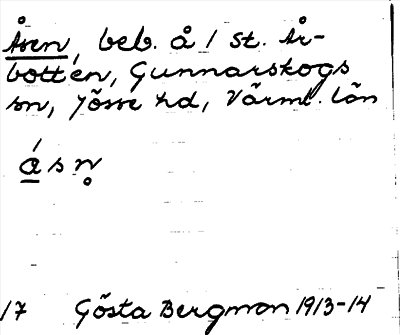 Åsen, beb. å 1 st. År-
botten, Gunnarskogs
sn, Jösse hd, Värml. län
á s n̥
17 Gösta Bergman 1913-14